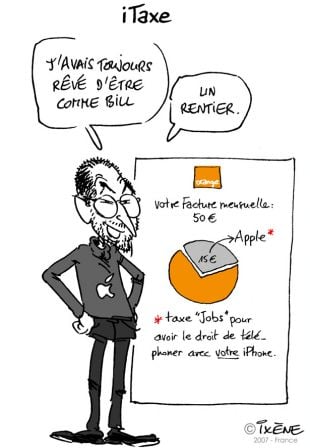 iTaxe
J'AVAIS TOUJOURS
RÊVÉ D'ÊTRE
COMME BILL
UN
RENTIER.
orange
Votre Facture mensuelle :
50 €
Apple *
15 €
* taxe "Jobs" pour
avoir le droit de télé_
phoner avec votre iPhone.
© ixène
2007 - France